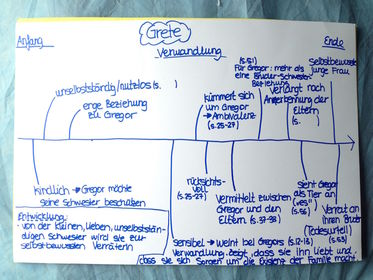 Grete
Anfang
Verwandlung
Ende
(S.51)
Für Gregor: mehr als
eine Bruder-Schwester-
Beziehung
Selbstbewusste
junge Frau
unselbstständig/nutzlos (S. )
enge Beziehung
zu Gregor
kümmert sich
um Gregor
→ Ambivalenz
(S.25-27)
verlangt nach
Anerkennung der
Eltern
(S. )
kindlich → Gregor möchte
seine Schwester beschützen
rücksichts-
voll
(S.25-27)
Vermittelt zwischen
Gregor und den
Eltern (S.37-38)
sieht Gregor
als Tier an
→ "es"
(S.56)
Verrat an
ihren Bruder
(Todesurteil)
(S.53)
Entwicklung:
von der kleinen, lieben, unselbststän-
digen Schwester wird sie zur
selbstbewussten Verräterin
sensibel → weint bei Gregors (S.12-13)
Verwandlung, zeigt, dass sie ihn liebt und
dass sie sich Sorgen um die Existenz der Familie macht